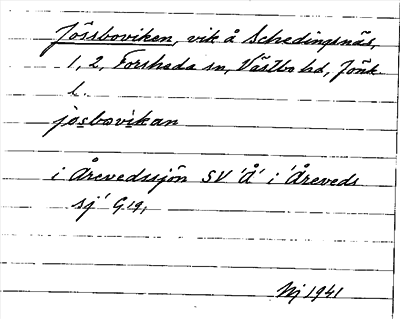 Jössboviken, vik å Schedingsnäs,
1, 2, Forsheda sn, Västbo hd, Jönk.
l.
josbovikan
i Årevedssjön SV 'Å' i 'Åreveds
sj' G.19,
Nj 1941